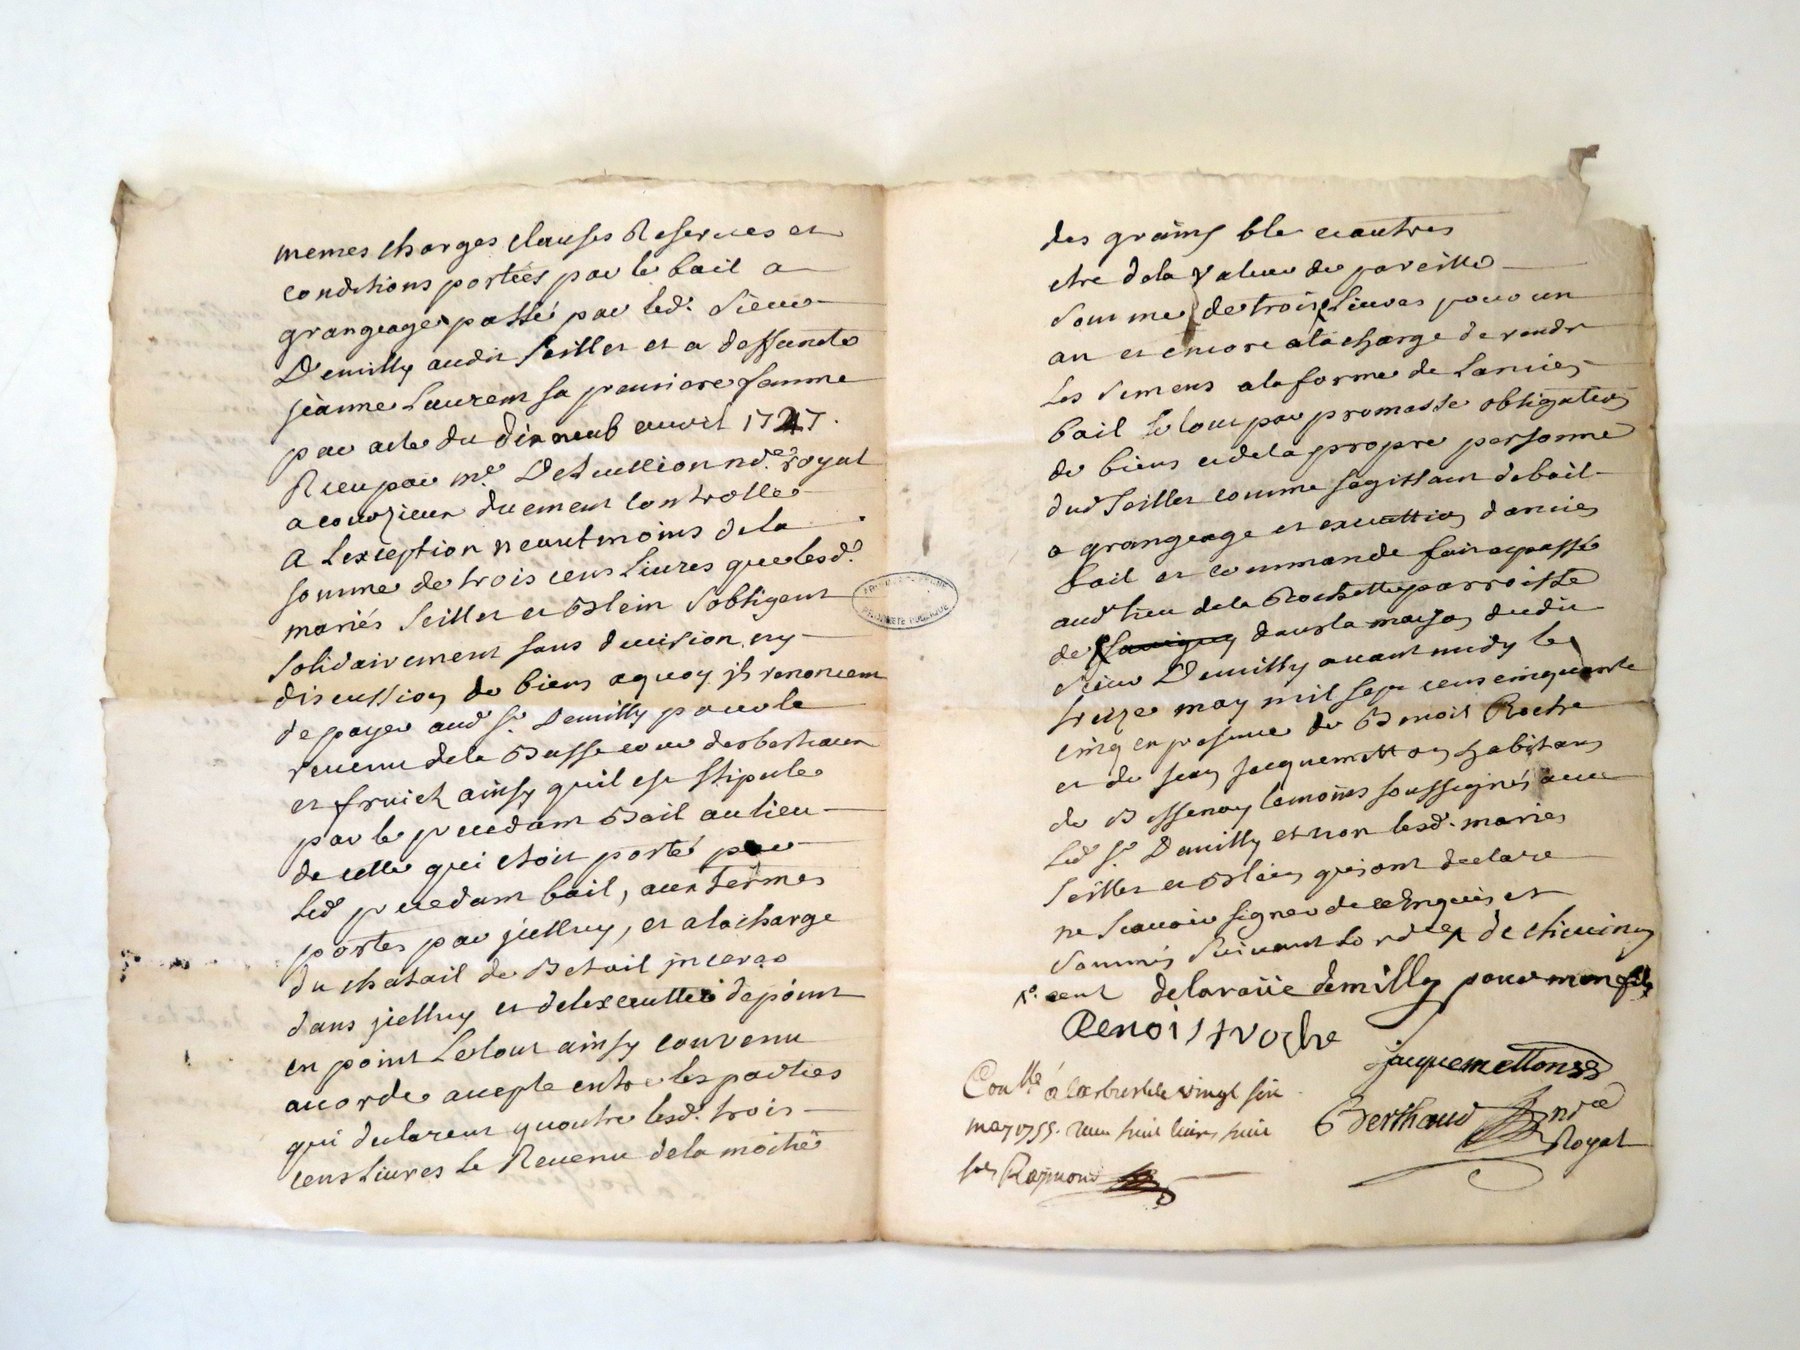 memes charges clauses Reserues et
conditions portées par le bail a
grangeage passé par led. Sieur
Demilly audit Seiller et a deffuncte
jeanne Laurent sa premiere femme
par acte du dix neuf auvril 1747.
Receu par me. notre. royal
a courzieux duement Controllé
A Lexception neantmoins de la
somme de trois cens Liures que lesd.
mariés Seiller et Blein sobligent
solidairement sans division ny
discussion de biens aquoy jls renoncent
de payer aud. Sr. Demilly pour le
reuenu dela Basse cour des bestiaux
et fruict ainsy quil est stipulé
par le precedant Bail au lieu
de celle qui etoit porté par
Led. precedant bail, aux termes
portes par jcelluy, et a la charge
du chatail de Betail jnceré
dans jcelluy et delexecutter depoint
en point Le tout ainsy convenu
acordé accepte entre les parties
qui declarent quautre lesd. trois
cens Liures Le Reuenu de la moitié
des grains ble et autres
etre dela valeur de pareille
somme de trois Liures pour un
an et encore ala charge de rendre
Les Semens ala forme de Lancien
bail Le tout par promesse obligation
de biens et dela propre personne
dud Seiller comme sagissant de bail
a grangeage et execution dancien
bail et commande fait et passé
aud. lieu de la Rochette parroisse
de Savigny dans la maison dudit
sieur Demilly auant midy le
treize may mil sept cens cinquante
cinq en presence de Benoit Roche
et de jean jacquemetton habitans
de Bessenay temoins soussignés auec
Led. Sr. Demilly et non lesd. mariés
Seiller et Blein qui ont declaré
ne Scauoir signer de ce Enquis et
Sommés Suivant Lord.ce de cheuiny
delaroüe demilly pour mon fils
Benoist roche
jacquemetton
Conlle. à Larbresle vingt six
may 1755. receu huit liures huit
sols Raymond
Berthaud nore.
Royal